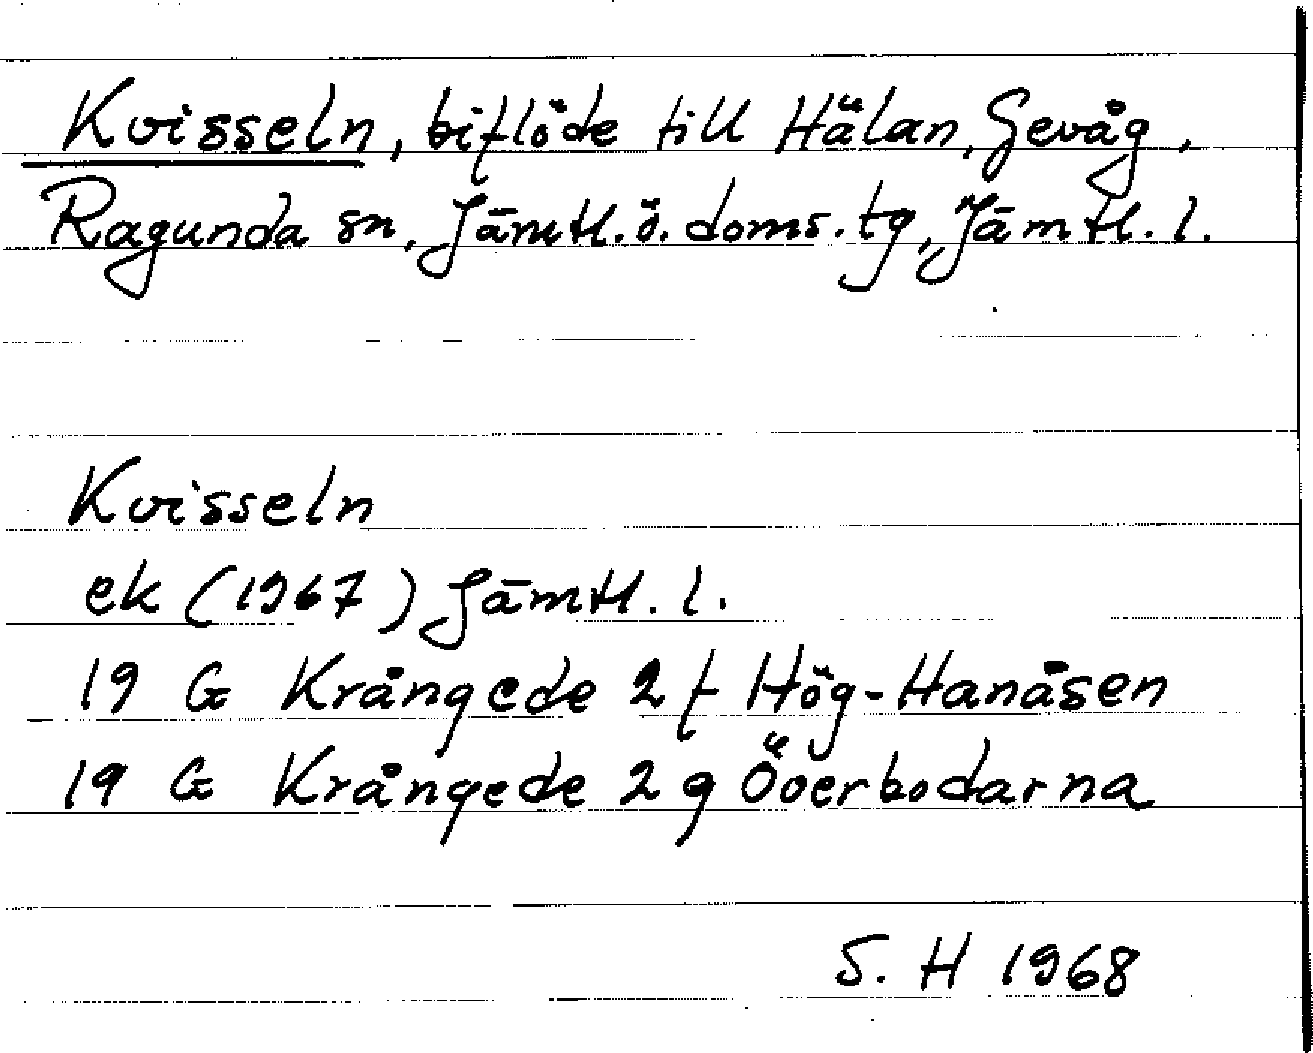 Kvisseln, biflöde till Hälan, Gevåg,
Ragunda sn, Jämtl. ö. doms. tg, Jämtl. l.
Kvisseln
ek (1967) Jämtl. l.
19 G Krångede 2 f Hög-Hanåsen
19 G Krångede 2 g Överbodarna
S. H 1968